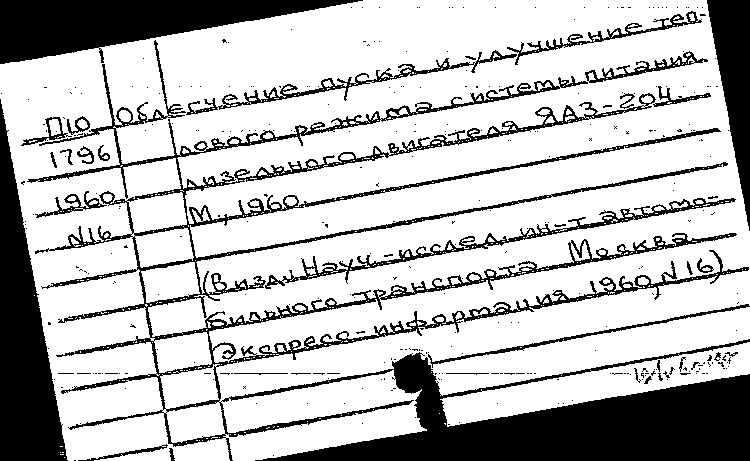 П10 Облегчение пуска и улучшение теп-
1796 лового режима системы питания
дизельного двигателя ЯАЗ-204.
1960 М., 1960.
N16
(Визд. Науч.-исслед. ин-т автомо-
бильного транспорта Москва
Экспресс-информация 1960, N16)